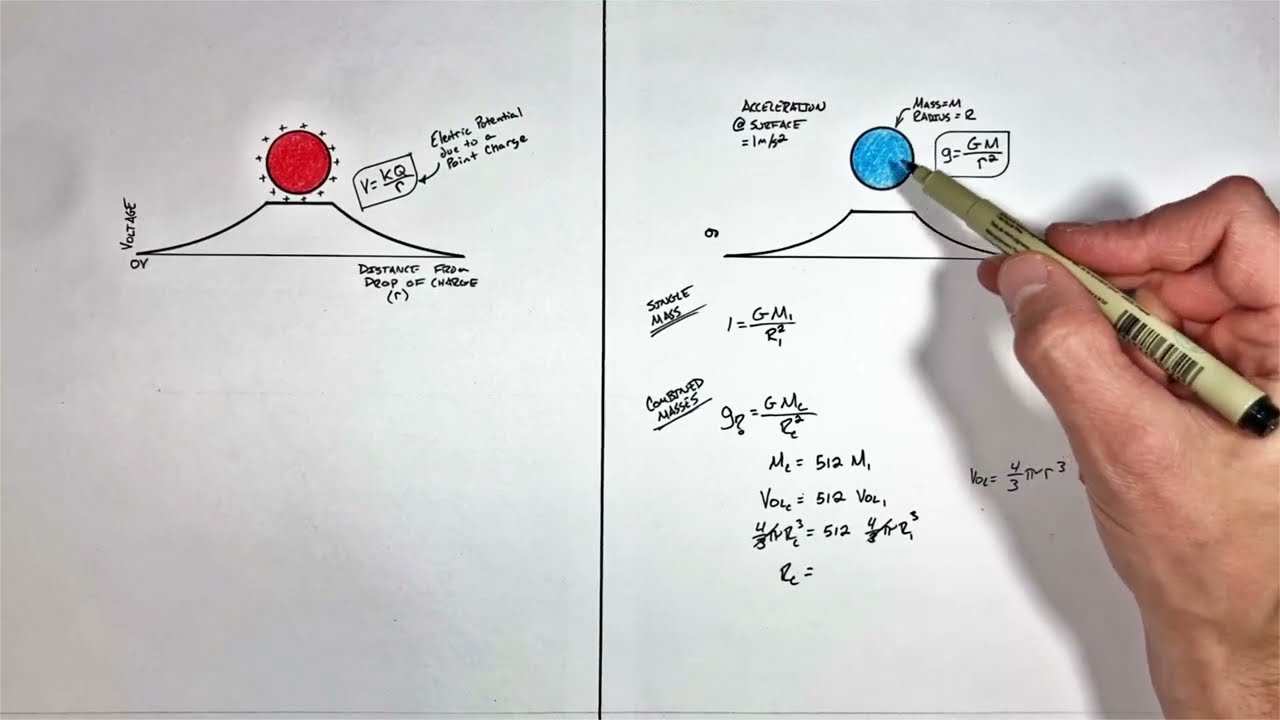 Electric Potential
due to a
Point Charge
V = KQ/r
VOLTAGE
0V
DISTANCE FROM
DROP OF CHARGE
(r)
ACCELERATION
@ SURFACE
= 1m/s2
MASS=M
RADIUS = R
g = GM/r²
SINGLE
MASS
1 = GM₁/R₁²
COMBINED
MASSES
g? = GMc/Rc²
Mc = 512 M₁
VOLc = 512 VOL₁
4/3πRc³ = 512 4/3πR₁³
Rc =
VOL = 4/3 πr³